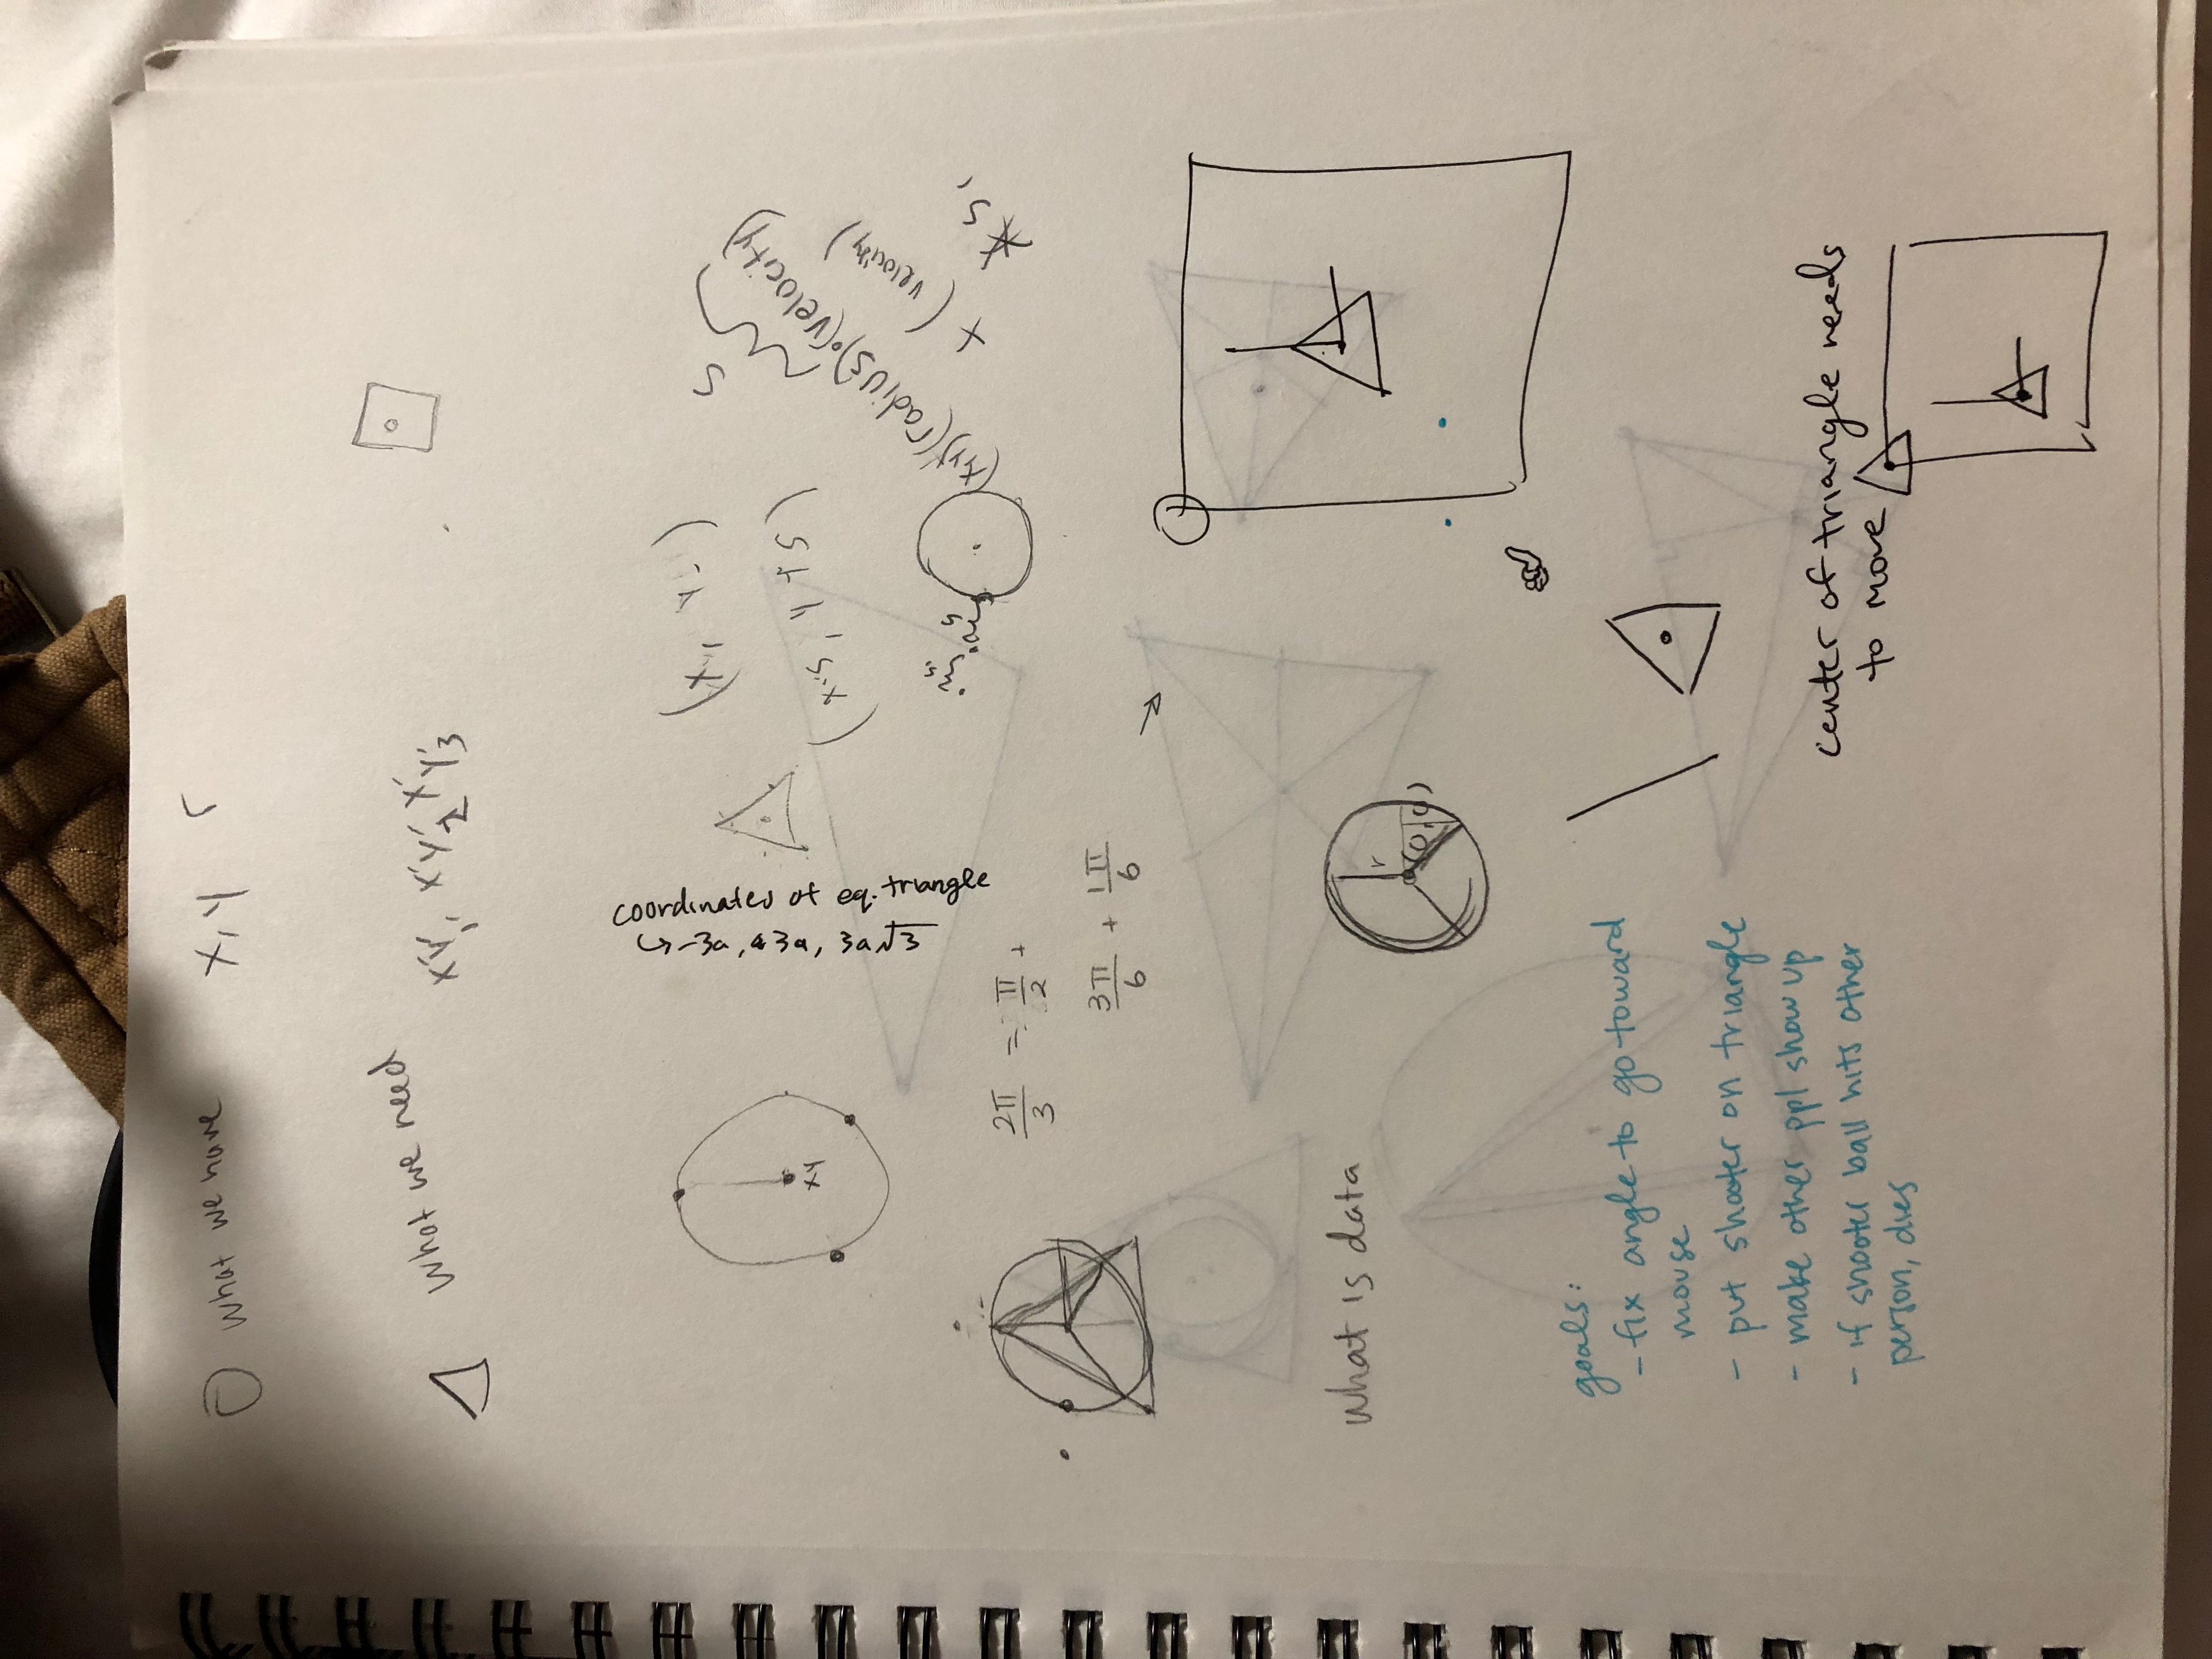 what we have x, y r
what we need x'y'1 x'y'2 x'y'3
(x, y-)
(x-5, y+5)
s
coordinates of eq. triangle
↳ -3a, 3a, 3a√3
xy
(xy)(radius)·(velocity)
+ (velocity)
* s,
2π/3 = π/2 +
3π/6 + 1π/6
what is data
r
(0,0)
goals:
- fix angle to go toward
mouse
- put shooter on triangle
- make other ppl show up
- if shooter ball hits other
person, dies
center of triangle needs
to move